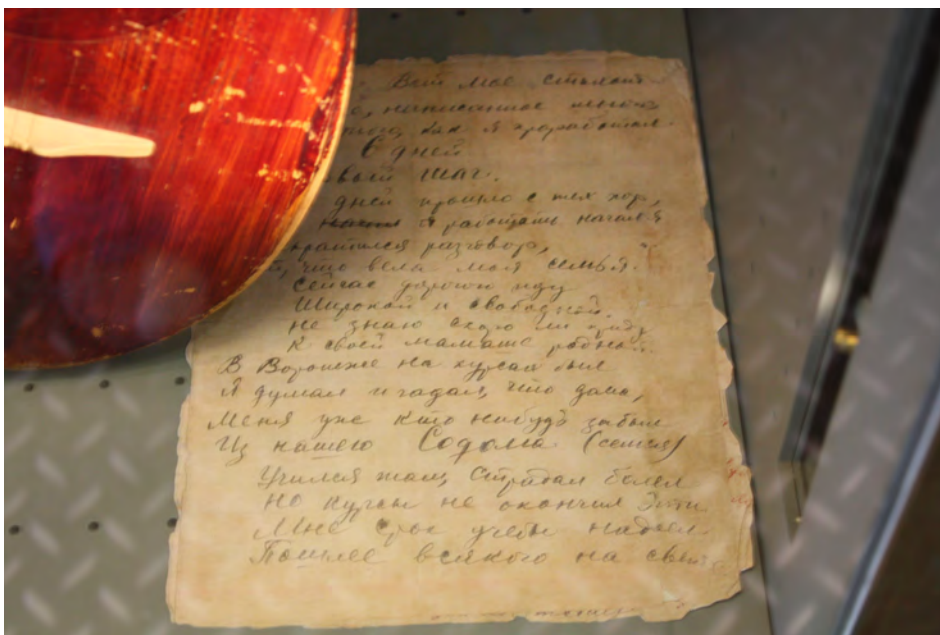 Вот мое
написанное
того, как я проработал
6 дней
вый шаг.
дней прошло с тех пор,
я работать начал
кратился разговор,
что вела моя семья.
Сейчас дорогой иду
Широкой и свободной.
Не знаю скоро ли приду
К своей мамаше родной...
В Воронеже на курсах был
Я думал и гадал, что дома,
Меня уже кто нибудь забыл
Из нашего Содома (семья)
Учился там, Страдал болел
Но курсы не окончил эти
Мне срок учебы надоел
Пошлее всякого на свете